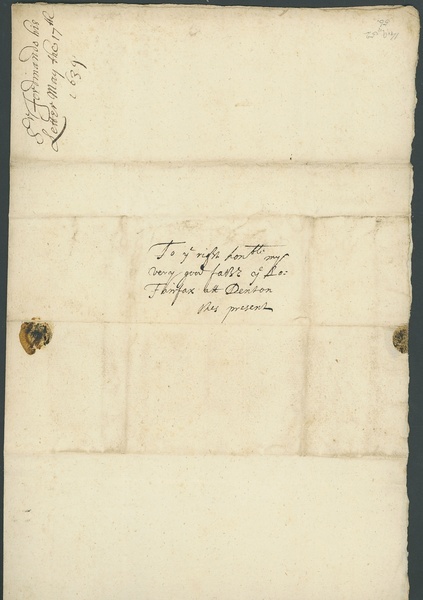 Sr Ferdinando his
Letter May the 17th
1639
To ye right honble my
very good father ye Lo:
Fairfax att Denton
thes present